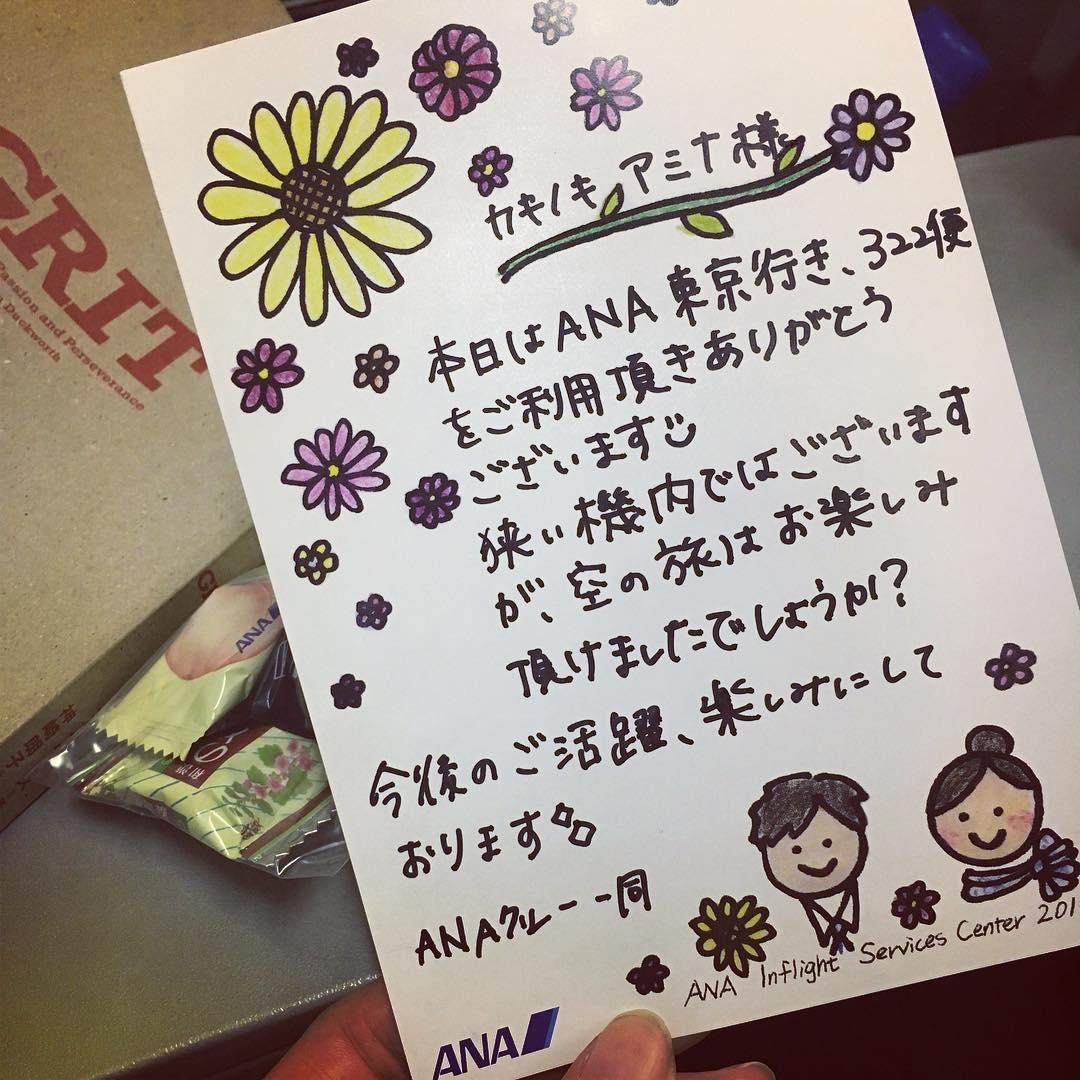 カキノキ アミナ様
本日はANA東京行き、322便
をご利用頂きありがとう
ございます
狭い機内ではございます
が、空の旅はお楽しみ
頂けましたでしょうか?
今後のご活躍、楽しみにして
おります
ANAクルー一同
ANA Inflight Services Center 201
ANA
GRIT
Passion and Perseverance
Duckworth
ANA